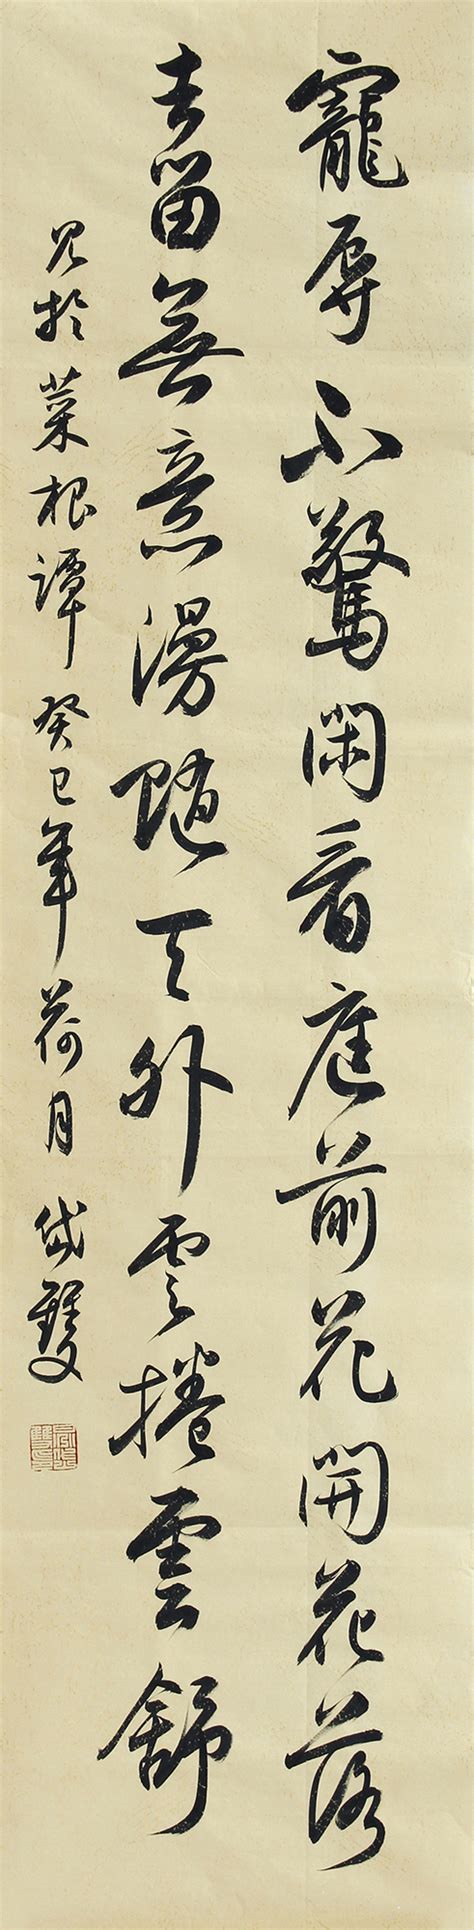 寵辱不驚閑看庭前花開花落
去留無意漫隨天外雲捲雲舒
見於菜根譚癸巳年荷月岱雙